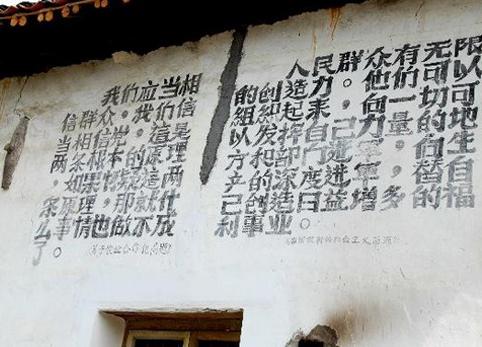 我们应当相
信群众,我们应
当相信党,这是
两条根本的原理
,如果怀疑这两
条原理,那就什
么事情也做不成
了。
《关于农业合作化问题》
人民群众有无限
的创造力。他们可以
组织起来,向一切可
以发挥自己力量的地
方和部门进军,向生
产的深度进军,替自
己创造日益增多的福
利事业。
《中国农村的社会主义高潮》